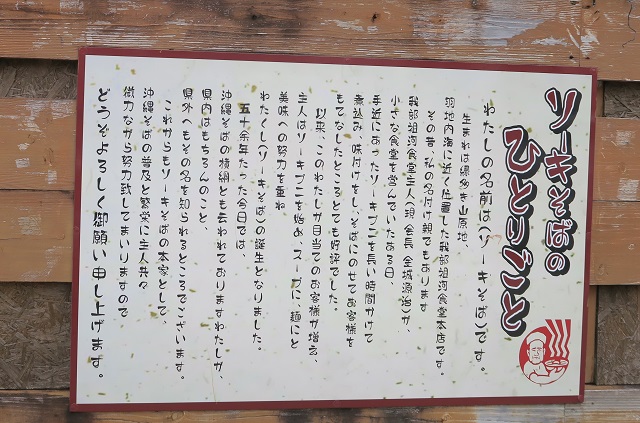 ソーキそばの
ひとりごと
わたしの名前は(ソーキそば)です。
生まれは緑多き山原地、
羽地内海に近く位置した我部祖河食堂本店です。
その昔、私の名付け親でもあります
我部祖河食堂主人(現 会長 金城源治)が、
小さな食堂を営んでいたある日
手近にあったソーキブニを長い時間かけて
煮込み、味付けをし、そばにのせてお客様を
もてなしたところとても好評でした。
以来、このわたしが目当てのお客様が増え、
主人はソーキブニを始め、スープに、麺にと
美味への努力を重ね
わたくし(ソーキそば)の誕生となりました。
五十余年たった今日では、
沖縄そばの横綱とも云われておりますわたしが、
県内はもちろんのこと、
県外へもその名を知られるところでございます。
これからもソーキそばの本家として、
沖縄そばの普及と繁栄に主人共々
微力ながら努力致してまいりますので
どうぞよろしく御願い申し上げます。